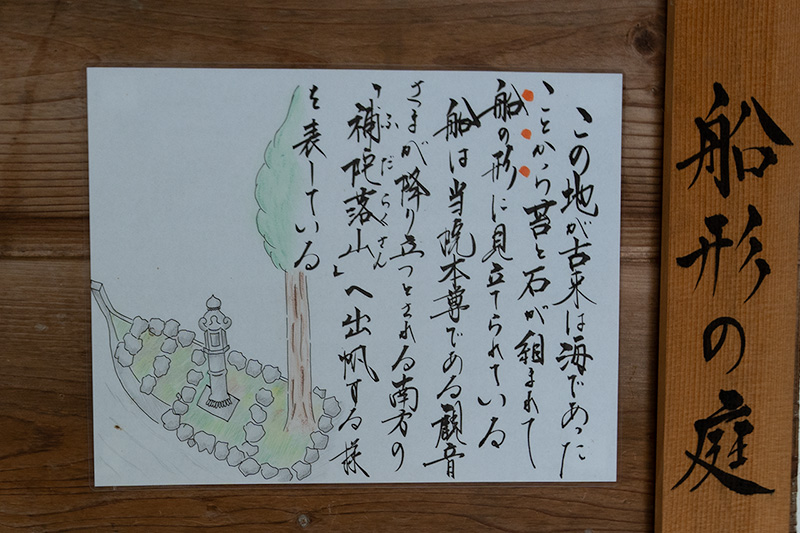 船形の庭
この地が古来は海であった
ことから苔と石が組まれて
船の形に見立てられている
船は当院本尊である観音
さまが降り立つとされる南方の
ふだらくさん
「補陀落山」へ出帆する様
を表している